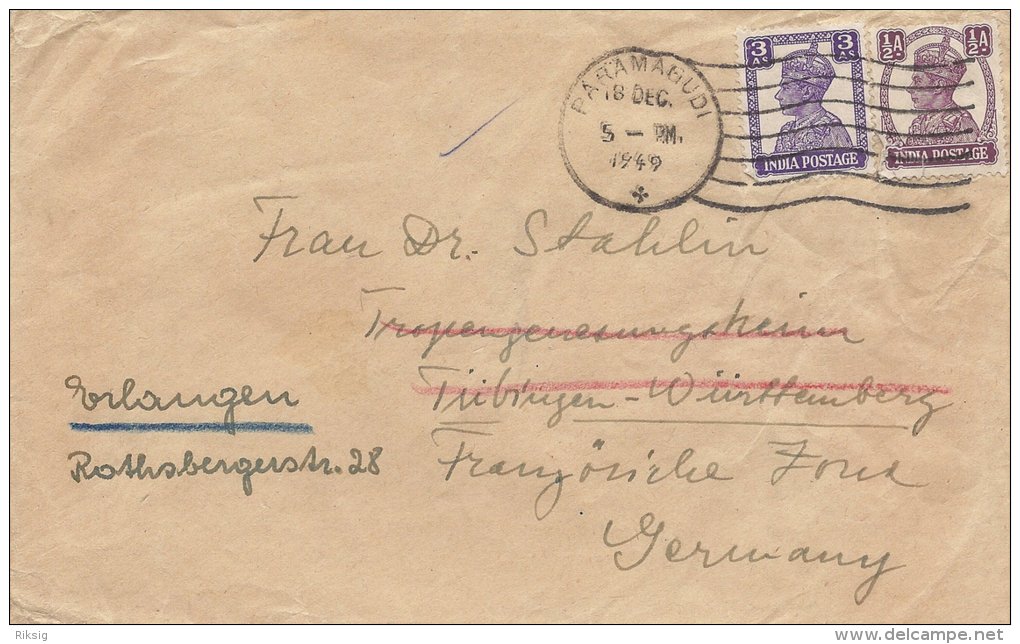 3 As 3 As
INDIA POSTAGE
½A ½A
INDIA POSTAGE
PARAMAGUDI
18 DEC.
5 – PM.
1949
Frau Dr. Stahlin
Tropengenesungsheim
Tübingen-Württemberg
Französiche Zone
Germany
Erlangen
Rathsbergerstr. 28
Riksig
www.delcampe.net